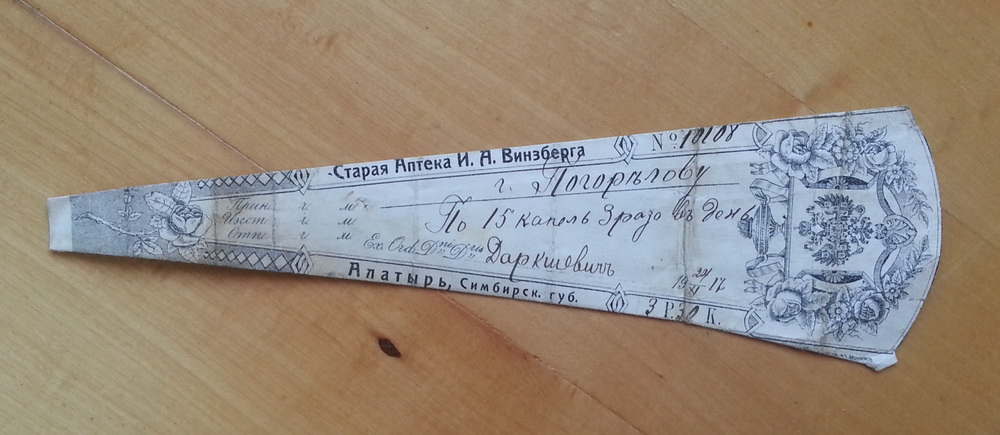 Старая Аптека И. А. Винзберга
№ 10108
г. Погорѣлову
Прин. г. м.
Изгот. г. м.
Отп. г. м.
По 15 капель 3 раза въ день
Ex. Ord. D-ni D-ris Даркшевичъ
19 24/II 17
Алатырь, Симбирск. губ.
3 Р. 30 К.